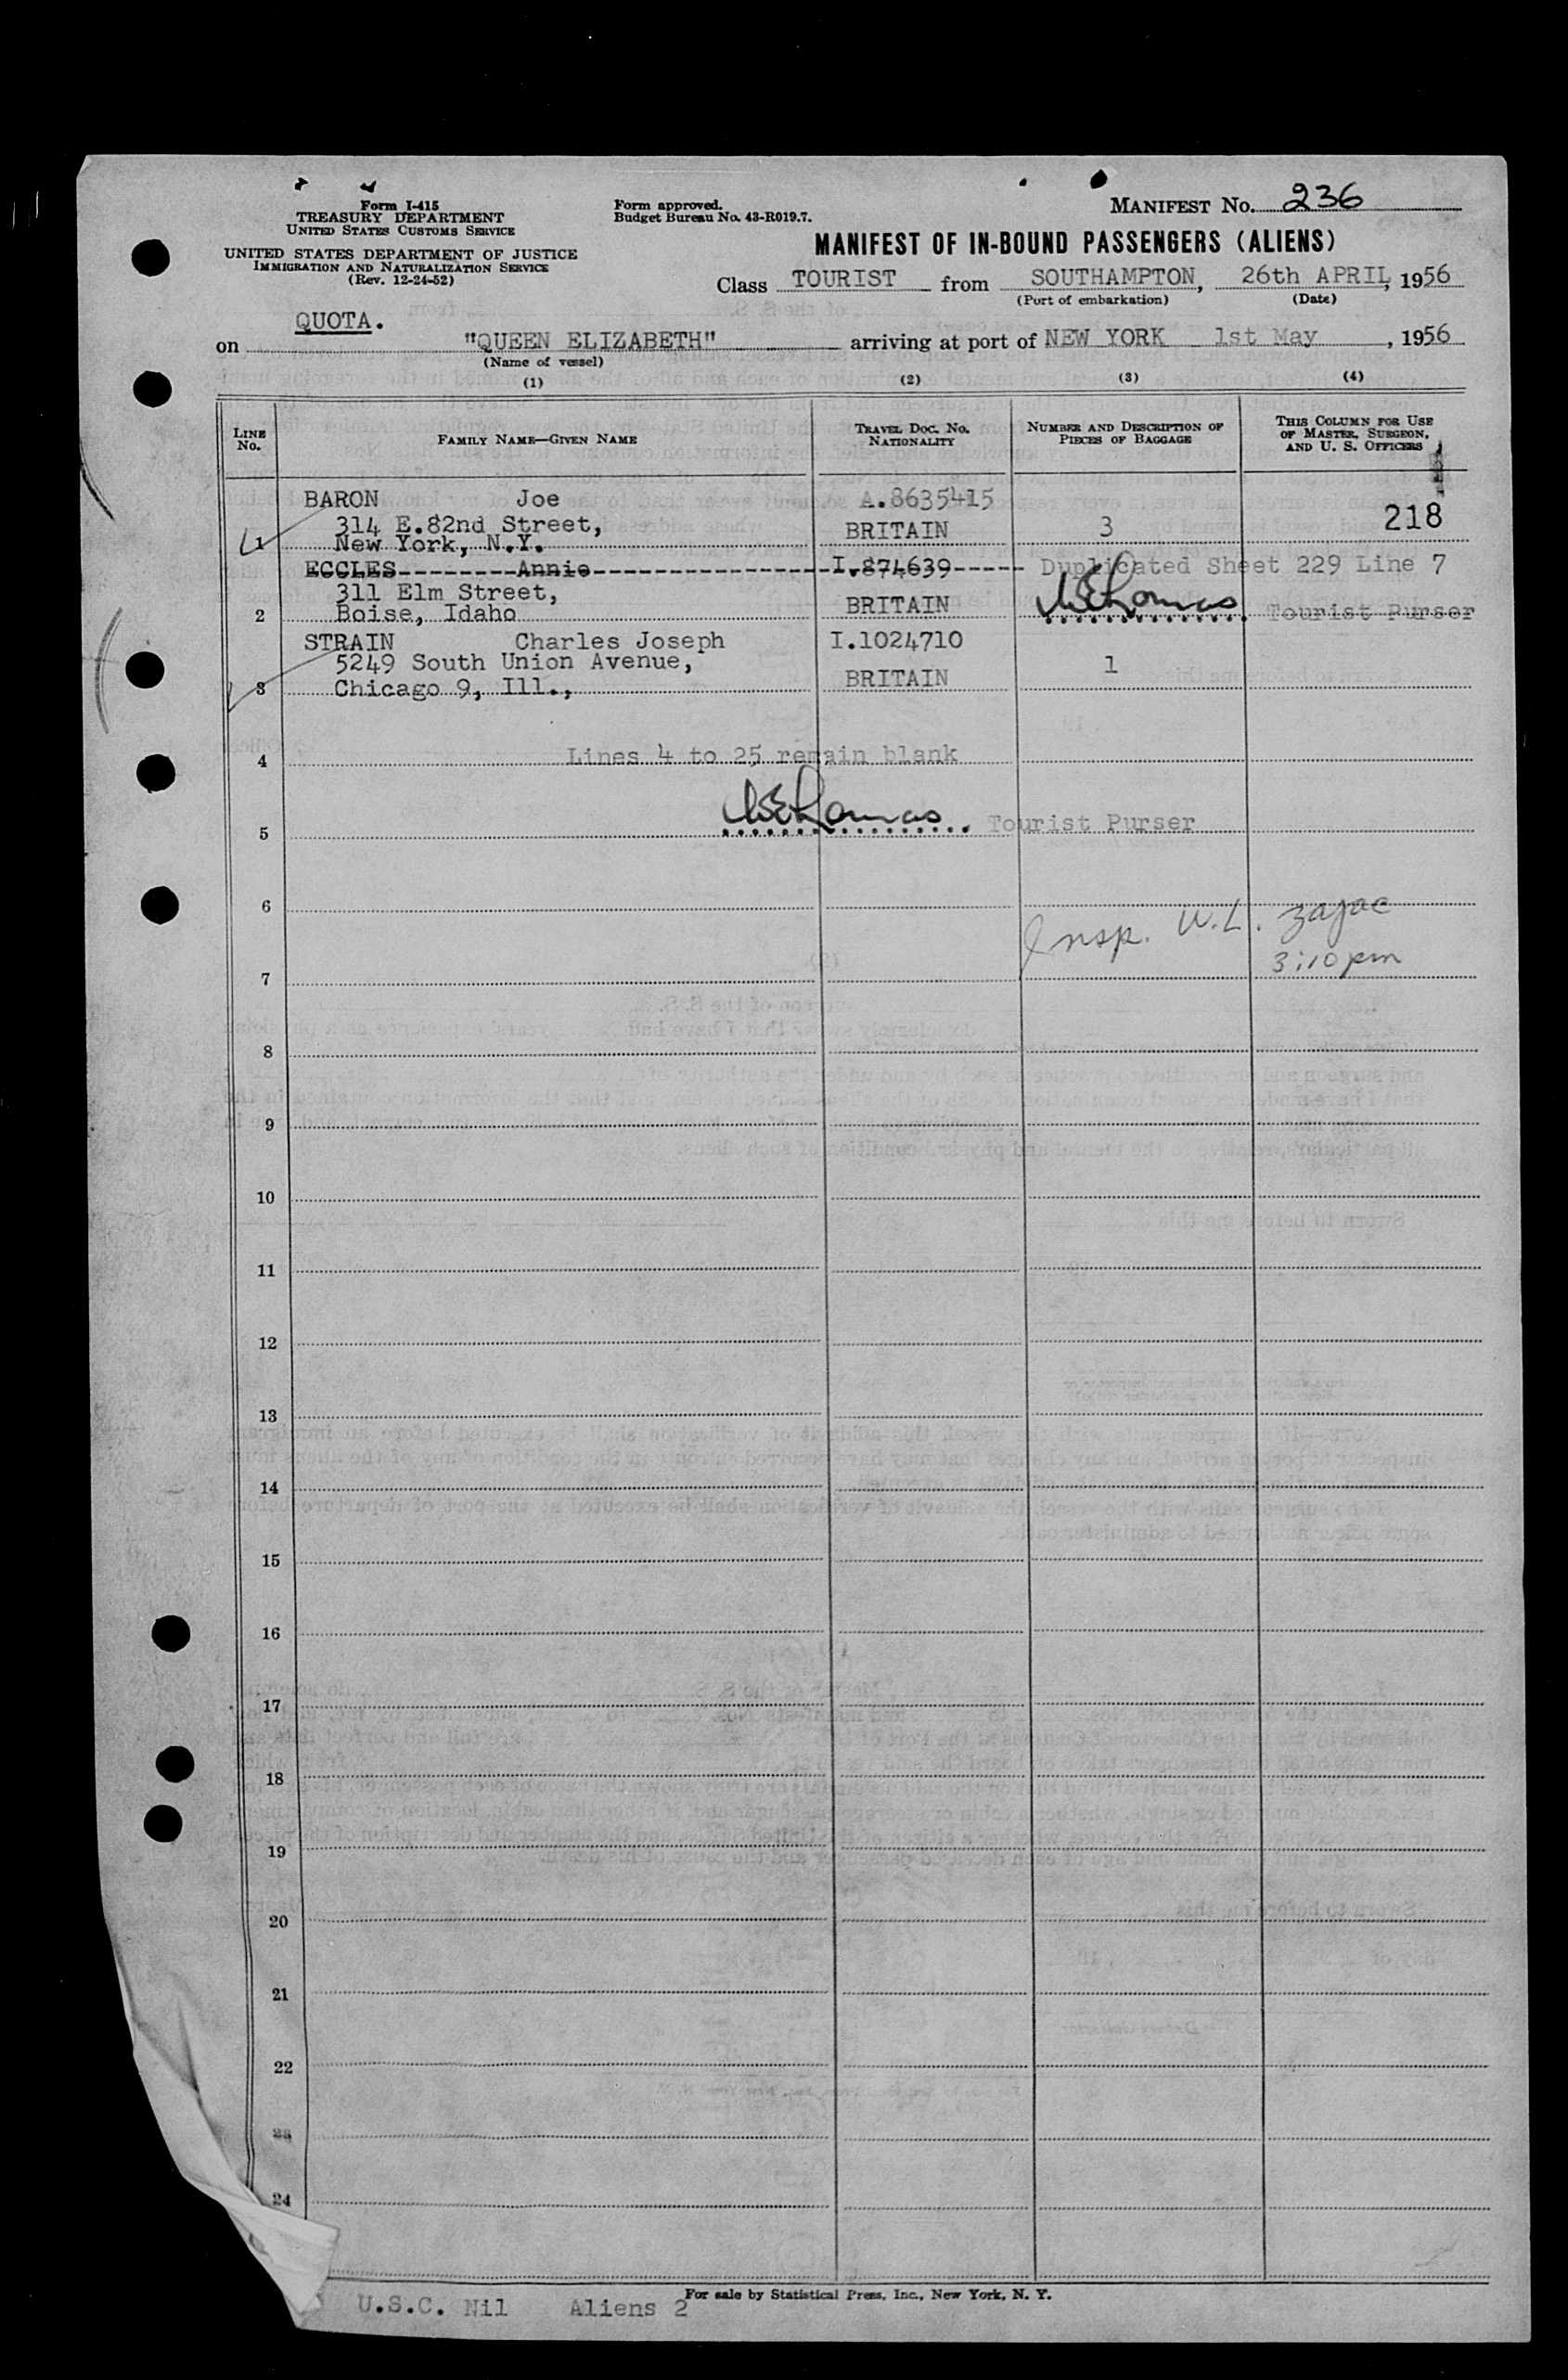 Form I-415
TREASURY DEPARTMENT
UNITED STATES CUSTOMS SERVICE
UNITED STATES DEPARTMENT OF JUSTICE
IMMIGRATION AND NATURALIZATION SERVICE
(Rev. 12-24-52)
Form approved.
Budget Bureau No. 43-R019.7.
MANIFEST No. 236
MANIFEST OF IN-BOUND PASSENGERS (ALIENS)
Class TOURIST from SOUTHAMPTON, 26th APRIL, 1956
(Port of embarkation) (Date)
QUOTA.
on "QUEEN ELIZABETH" arriving at port of NEW YORK 1st May, 1956
(Name of vessel)
(1) (2) (3) (4)
LINE No. FAMILY NAME—GIVEN NAME TRAVEL DOC. No. NATIONALITY NUMBER AND DESCRIPTION OF PIECES OF BAGGAGE THIS COLUMN FOR USE OF MASTER, SURGEON, AND U. S. OFFICERS
BARON Joe A.8635415
314 E.82nd Street, BRITAIN 3 218
1 New York, N.Y.
ECCLES--------Annie----------------I.874639----- Duplicated Sheet 229 Line 7
311 Elm Street,
2 Boise, Idaho BRITAIN Tourist Purser
STRAIN Charles Joseph I.1024710
5249 South Union Avenue, 1
3 Chicago 9, Ill., BRITAIN
4 Lines 4 to 25 remain blank
5 Tourist Purser
6
Insp. W.L. Zajac
3:10 pm
7
8
9
10
11
12
13
14
15
16
17
18
19
20
21
22
23
24
For sale by Statistical Press, Inc., New York, N. Y.
U.S.C. Nil Aliens 2